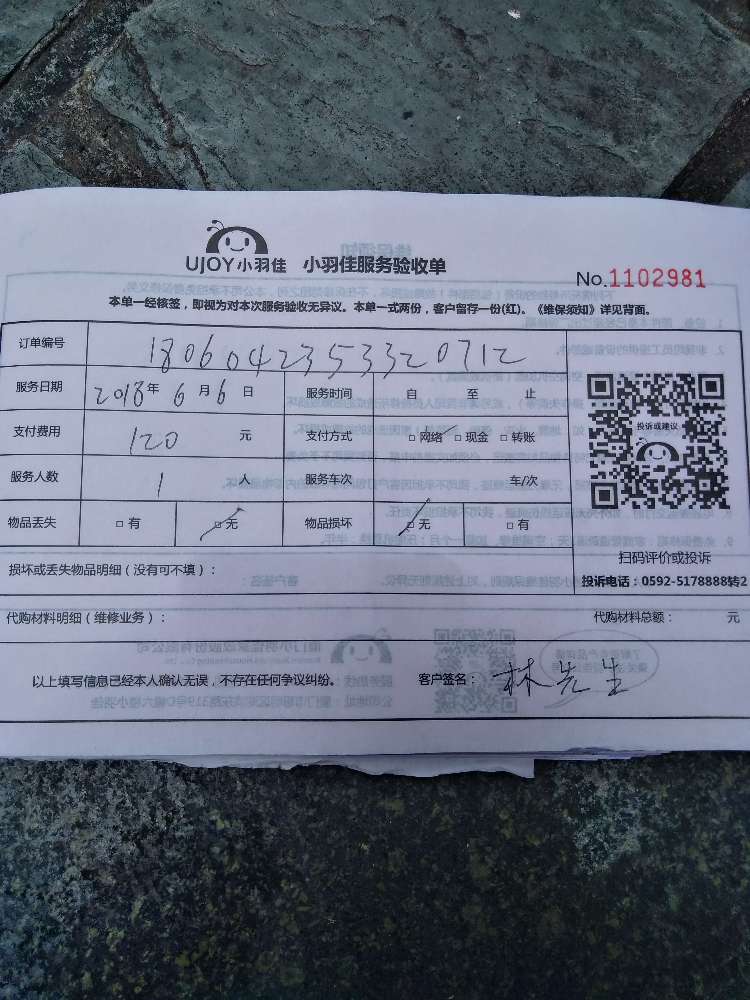 UJOY小羽佳 小羽佳服务验收单
No.1102981
本单一经核签，即视为对本次服务验收无异议。本单一式两份，客户留存一份(红)。《维保须知》详见背面。
订单编号 1806042353320712
服务日期 2018年 6月 6日 服务时间 自 至 止
支付费用 120 元 支付方式 □网络 □现金 □转账
服务人数 1 人 服务车次 车/次
物品丢失 □有 □无 物品损坏 □无 □有
投诉或建议
扫码评价或投诉
损坏或丢失物品明细（没有可不填）：
投诉电话：0592-5178888转2
代购材料明细（维修业务）： 代购材料总额： 元
以上填写信息已经本人确认无误，不存在任何争议纠纷。 客户签名： 林先生